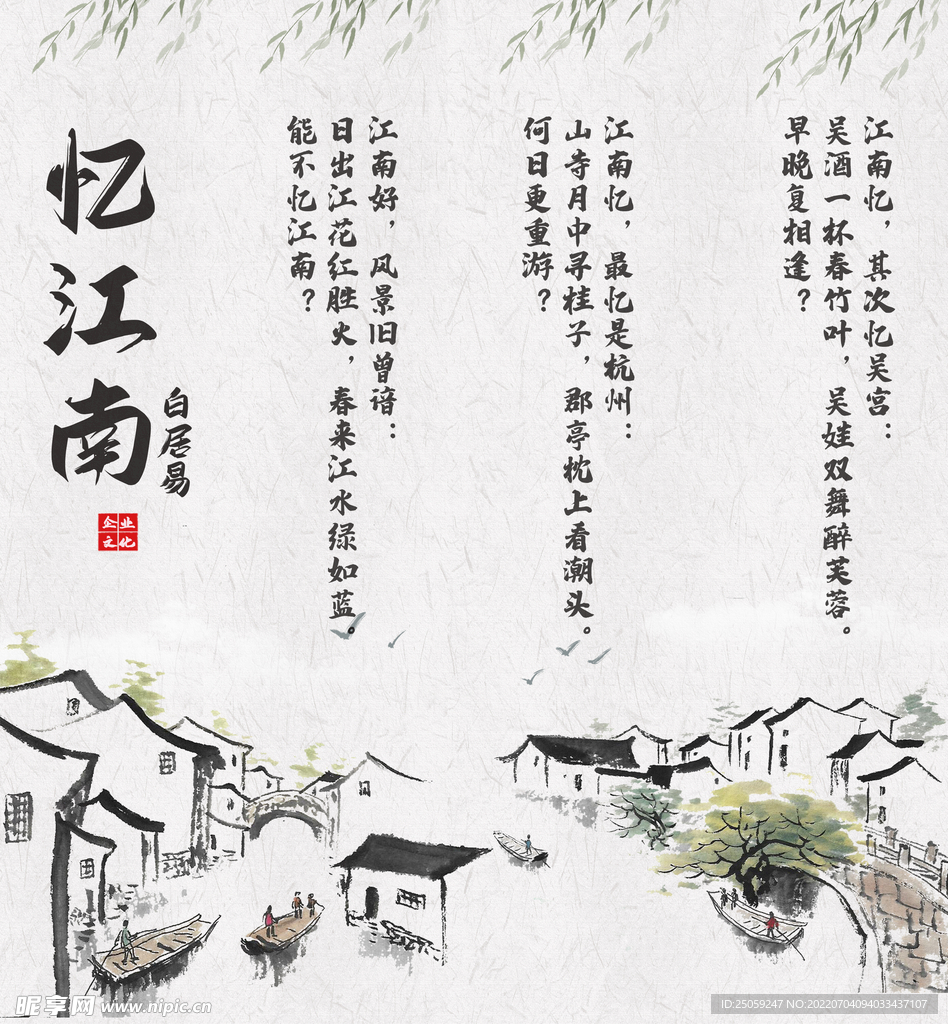 忆江南
白居易
企业
文化
江南好，风景旧曾谙：
日出江花红胜火，春来江水绿如蓝。
能不忆江南？
江南忆，最忆是杭州：
山寺月中寻桂子，郡亭枕上看潮头。
何日更重游？
江南忆，其次忆吴宫：
吴酒一杯春竹叶，吴娃双舞醉芙蓉。
早晚复相逢？
昵享网 www.nipic.cn
ID:25059247 NO:20220704094033437107